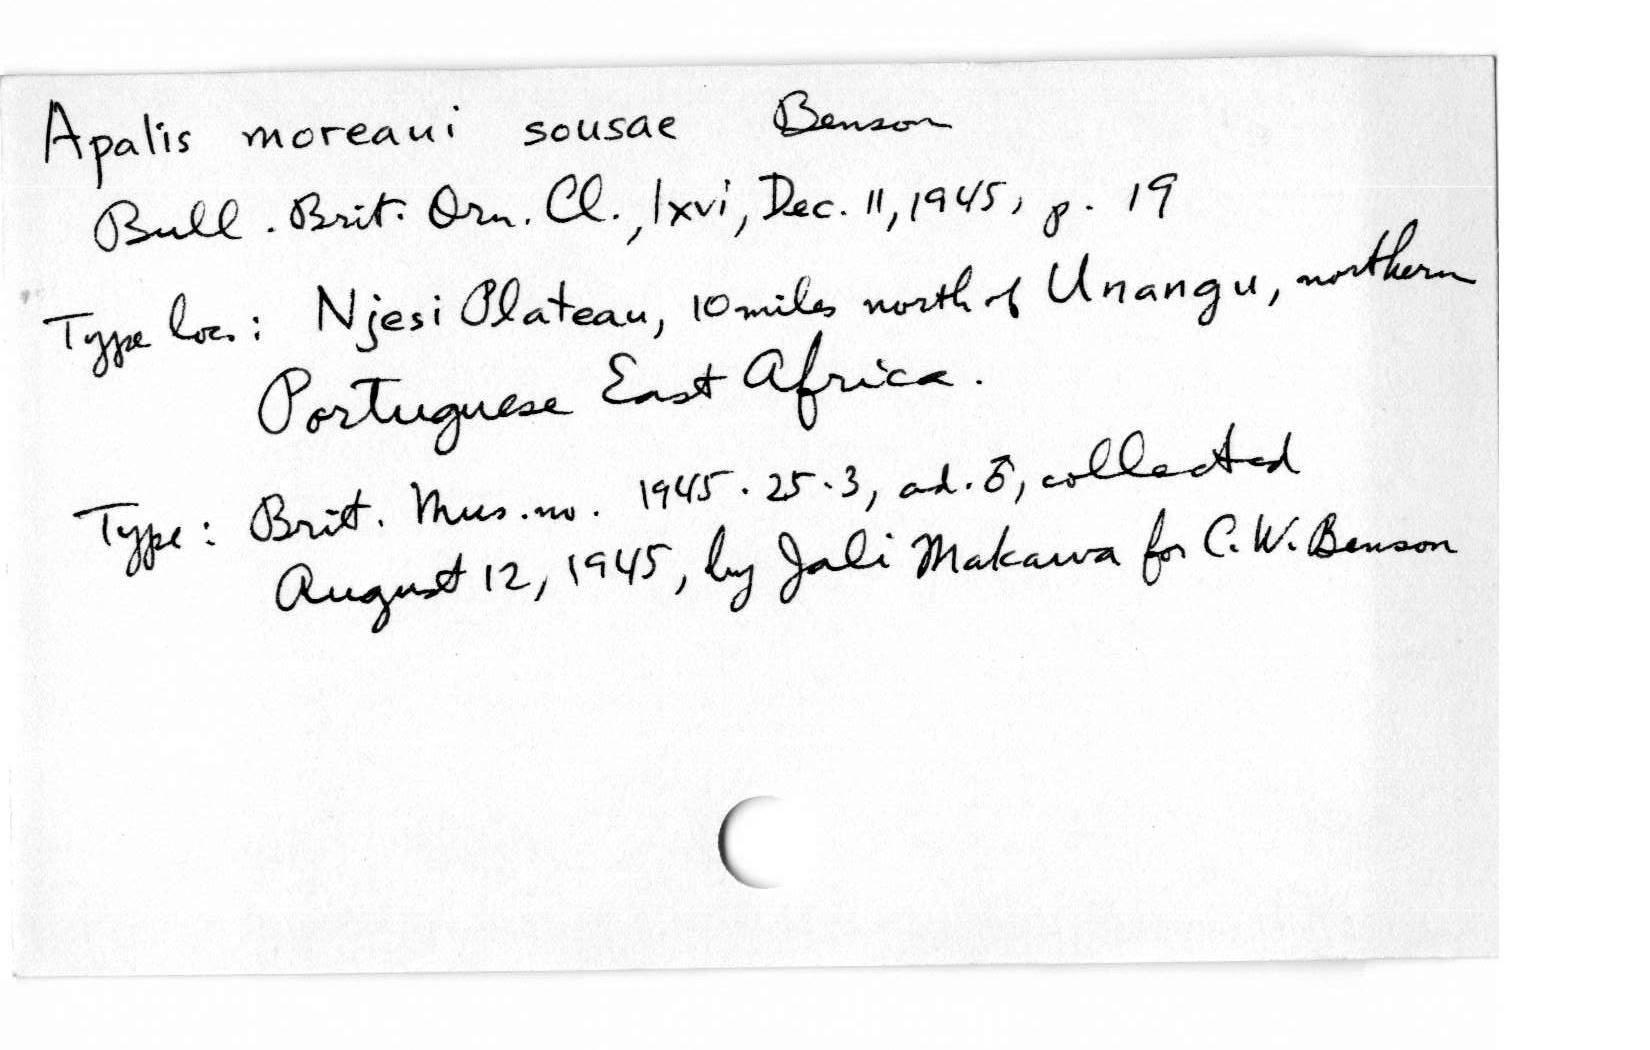 Apalis moreaui sousae Benson
Bull. Brit. Orn. Cl., lxvi, Dec. 11, 1945, p. 19
Type loc.: Njesi Plateau, 10 miles north of Unangu, northern
Portuguese East Africa.
Type: Brit. Mus. no. 1945.25.3, ad. ♂, collected
August 12, 1945, by Jali Makawa for C. W. Benson